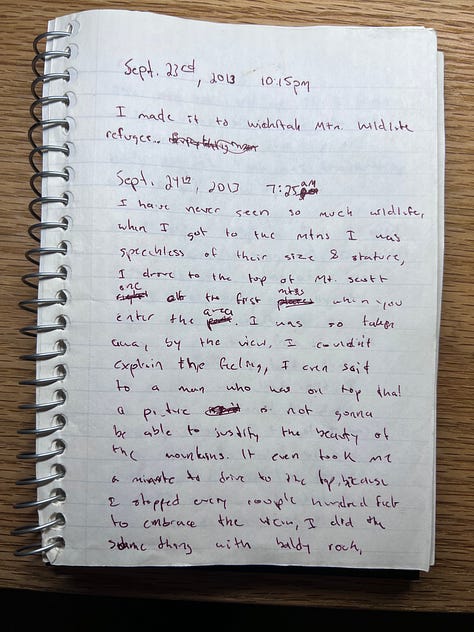 Sept. 23rd, 2013 10:15pm
I made it to wichitah Mtn. Wildlife
refuge...
Sept. 24th, 2013 7:25am
I have never seen so much wildlife,
when I got to the mtns I was
speechless of their size & stature,
I drove to the top of Mt. Scott
one of the first mtns when you
enter the area. I was so taken
away by the view, I couldn't
explain the feeling, I even said
to a man who was on top that
a picture is not gonna
be able to justify the beauty of
the mountains. It even took me
a minute to drive to the top, because
I stopped every couple hundred feet
to embrace the view, I did the
same thing with baldy rock,